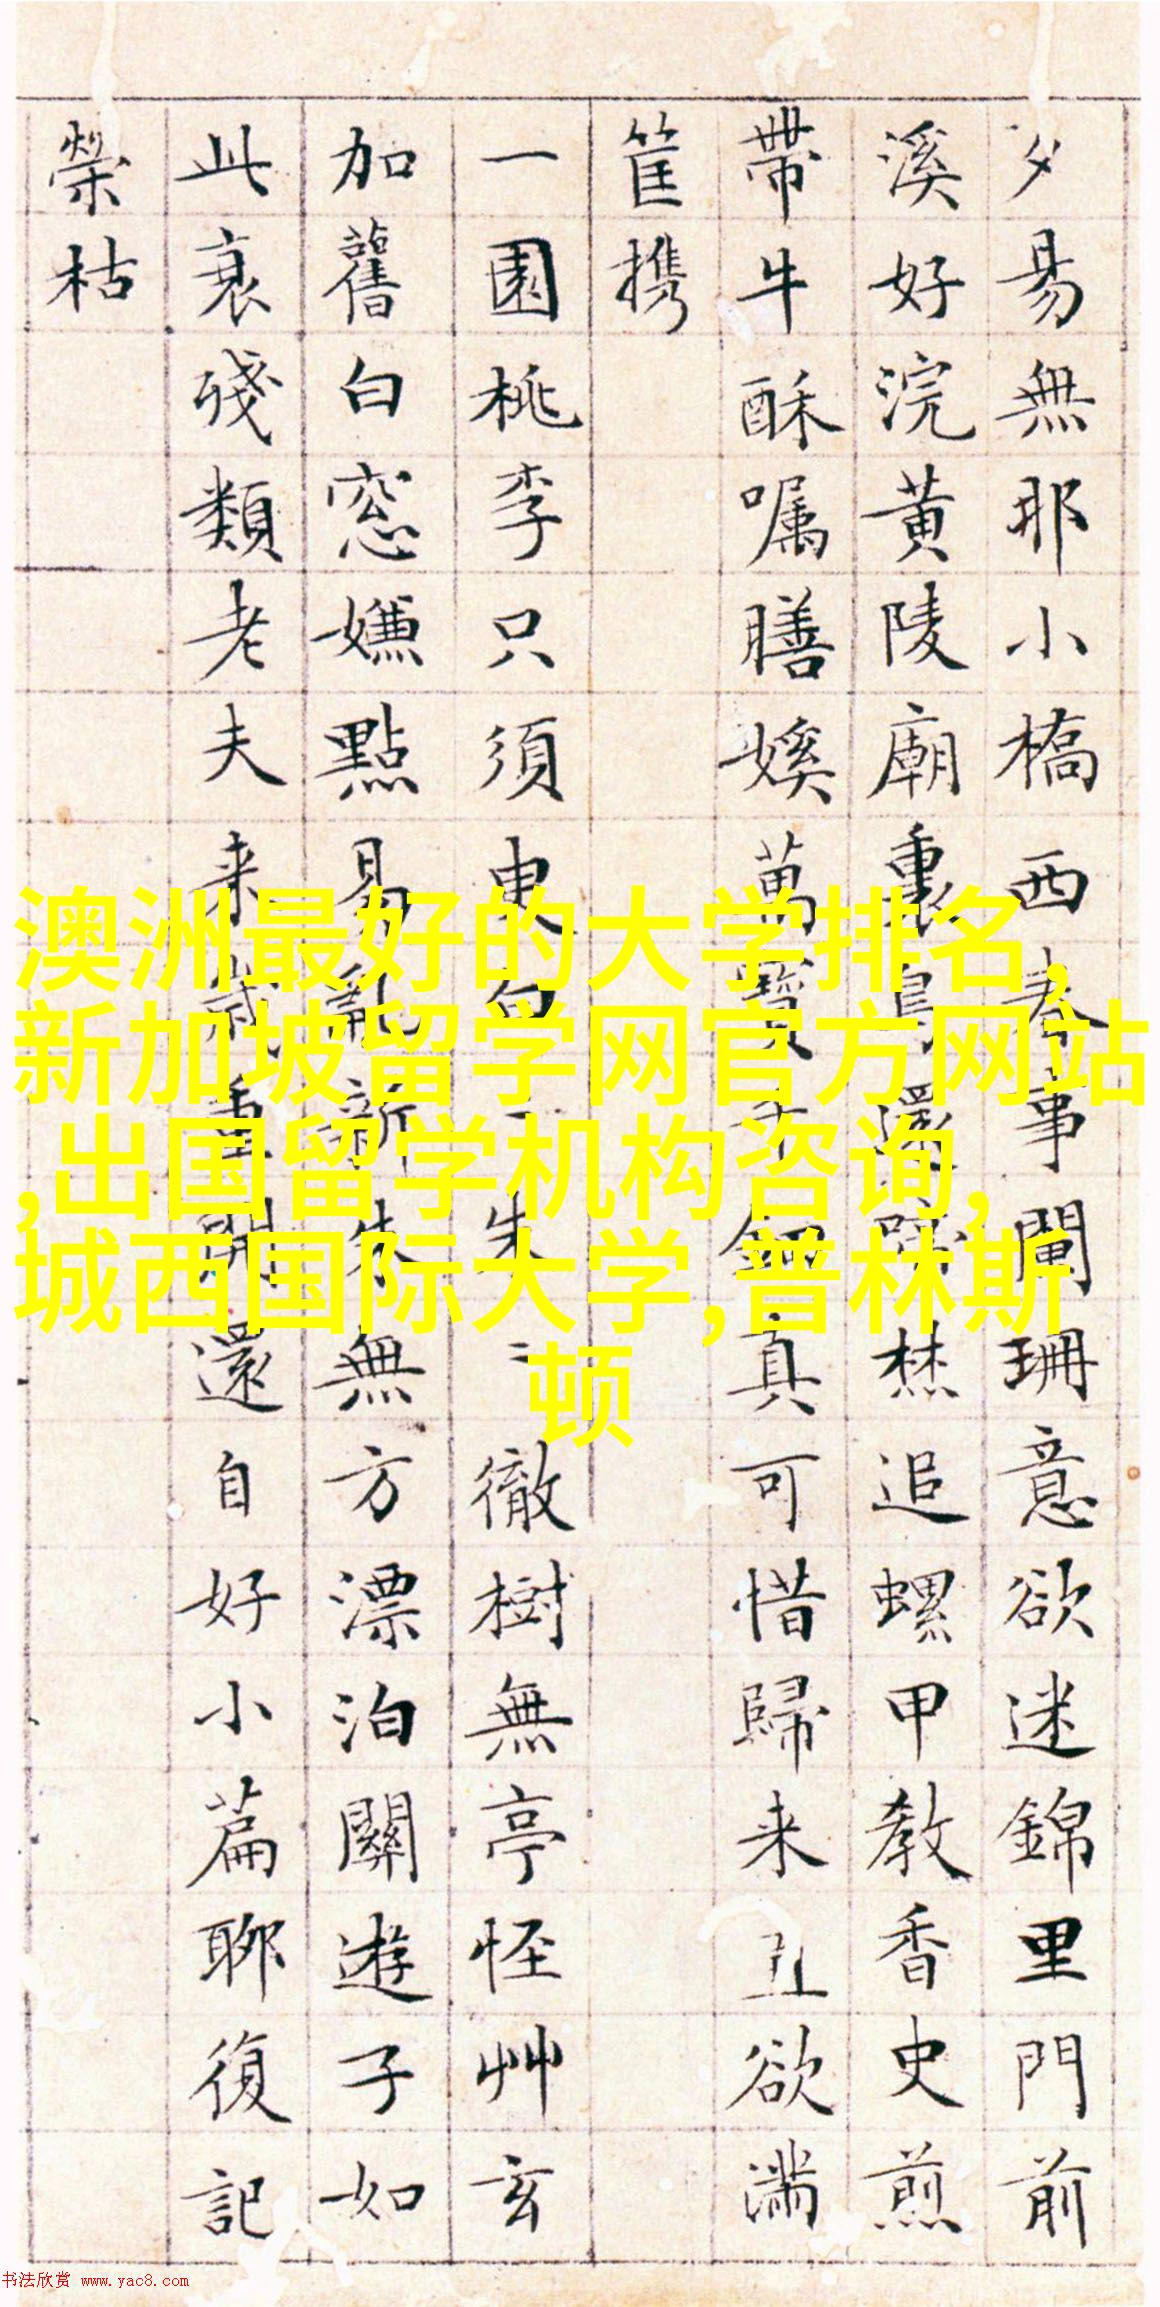 夕易無耶小橋西春事闌珊意欲迷錦里門前
溪好浣黃陵廟裏鳥還啼焚追螺甲教香史煎
帶牛酥囑膳媛萬寶千鈿真可惜歸来丑欲滿
筐携
一園桃李只須臾白〻朱〻徹樹無亭怪艸玄
加舊白窓嫌點易亂新朱無方漂泊關遊子如
此衰殘類老夫来歲重開還自好小篇聊復記
榮枯
澳洲最好的大学排名,
新加坡留学网官方网站
,出国留学机构咨询,
城西国际大学,普林斯
顿
书法欣赏 www.yac8.com